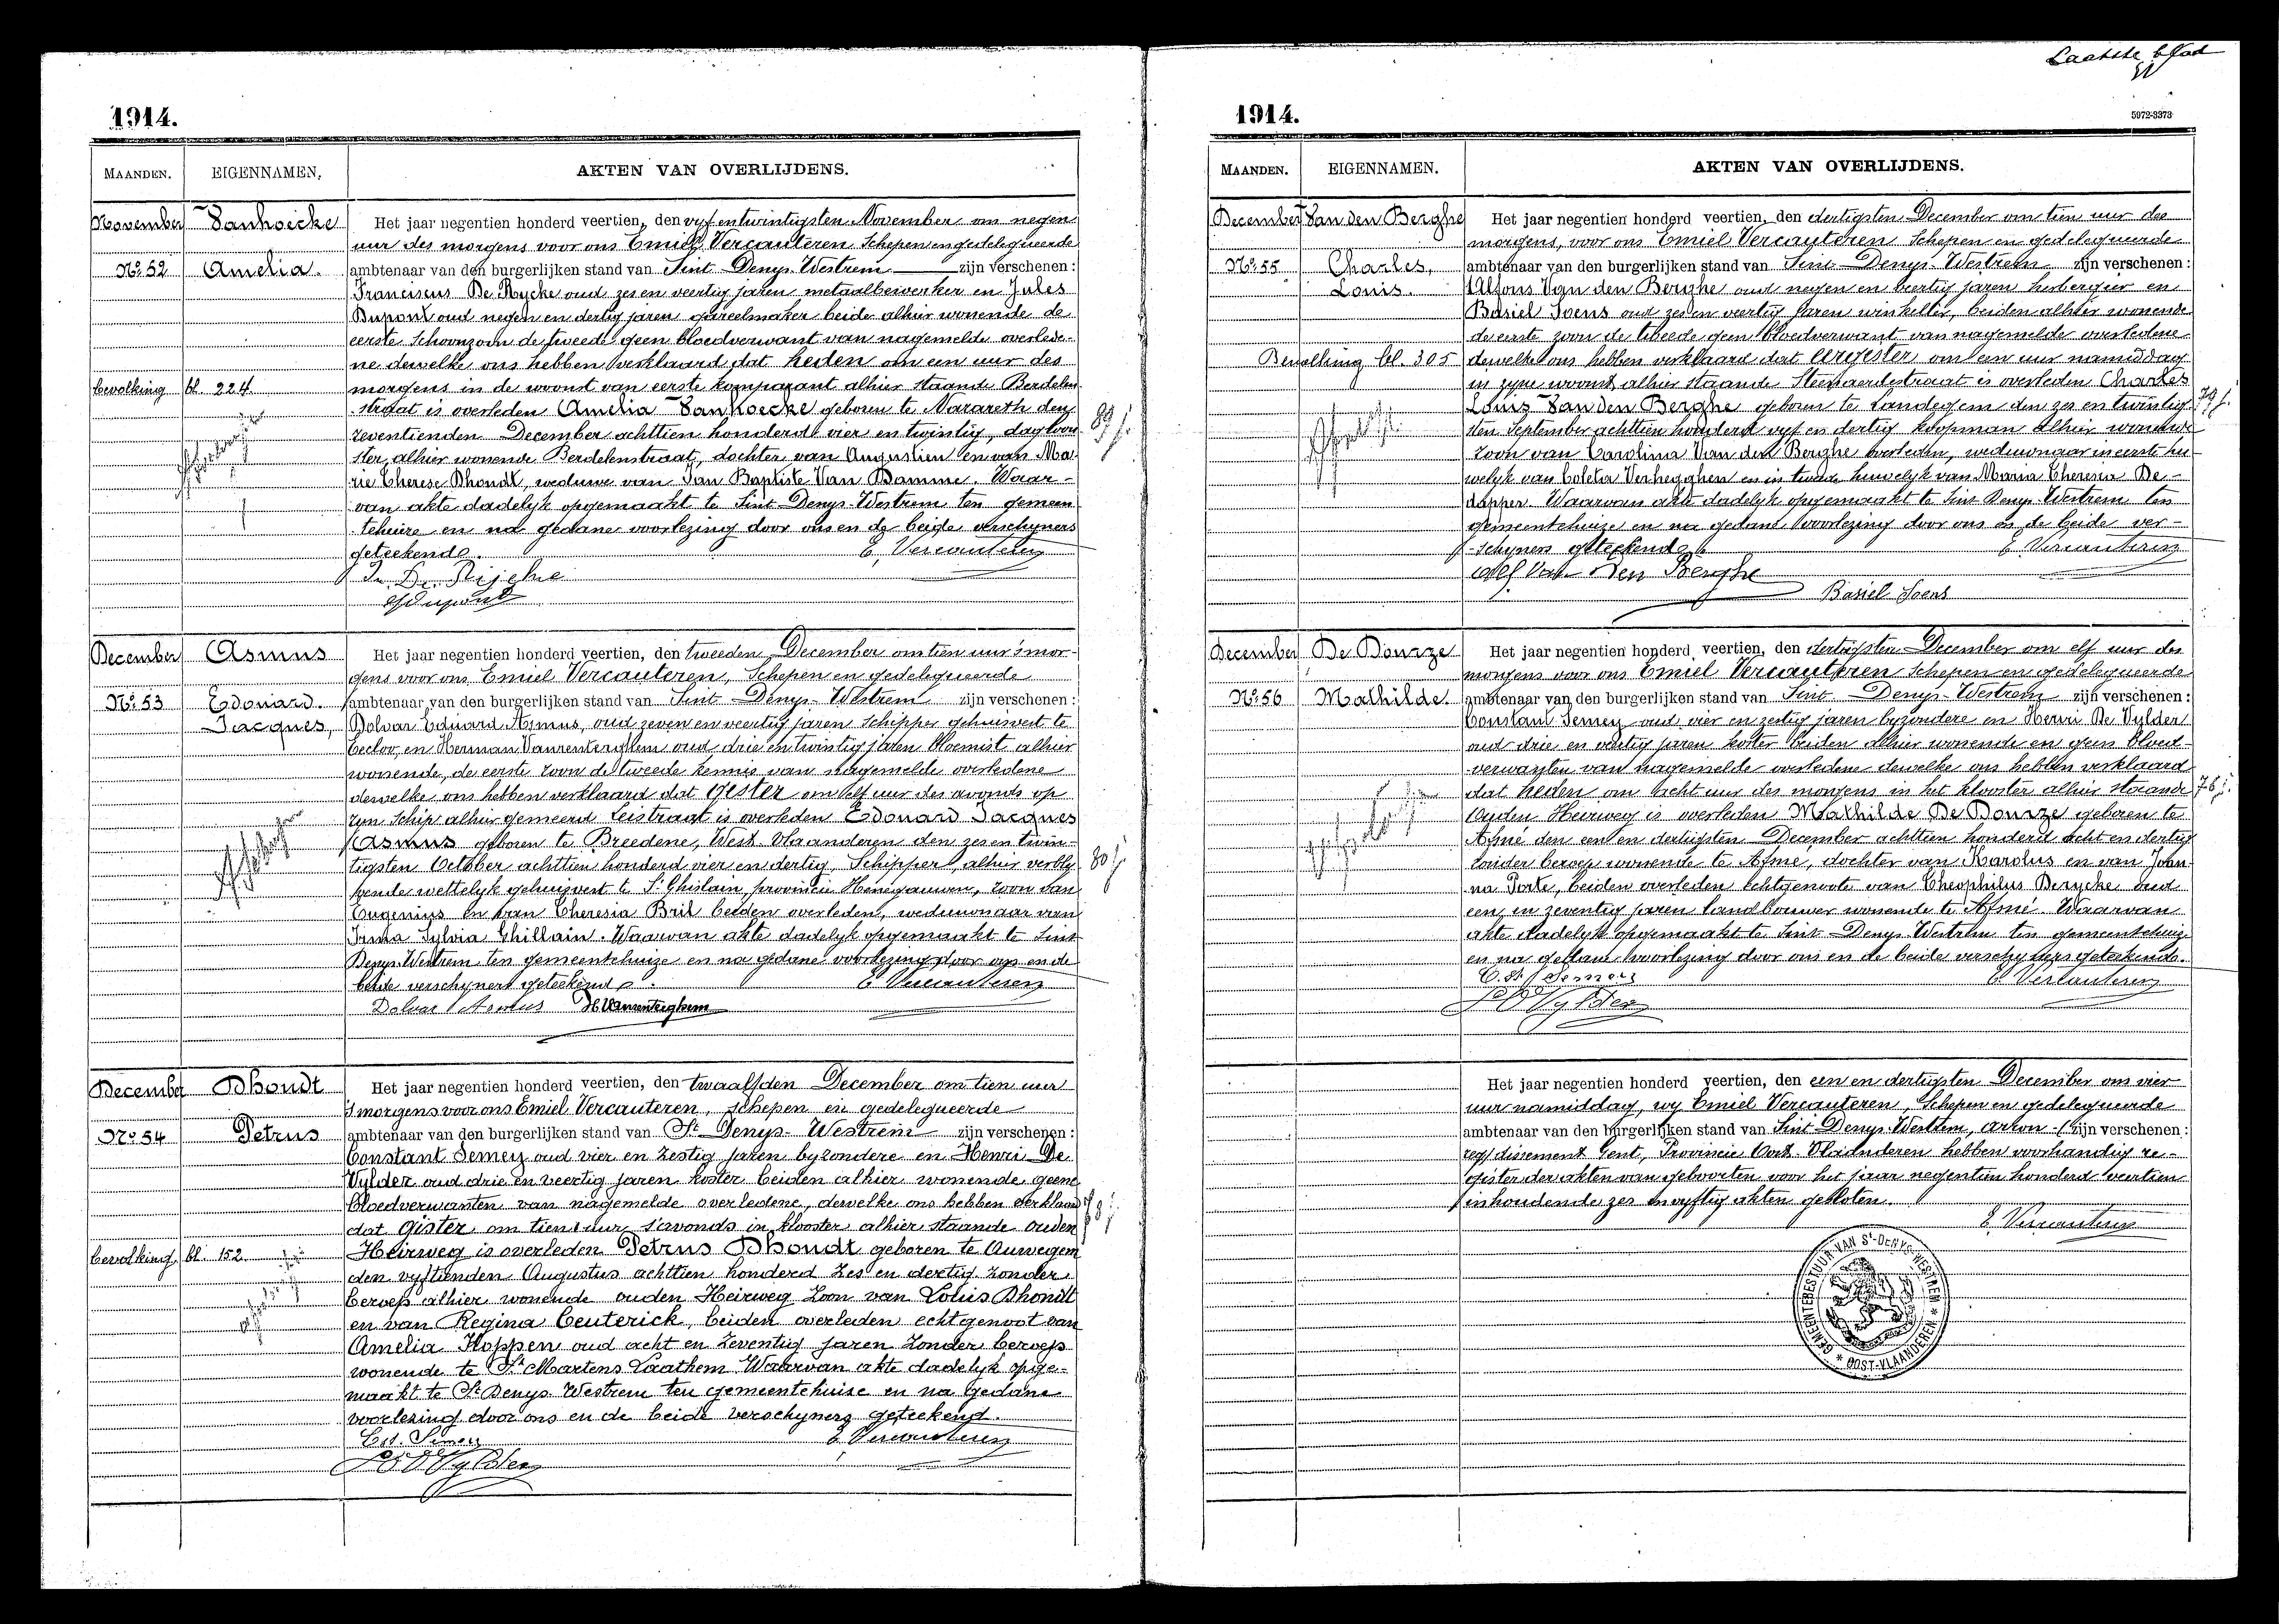 Laatste blad
1914.
MAANDEN. EIGENNAMEN. AKTEN VAN OVERLIJDENS.
November Vanhoecke Het jaar negentien honderd veertien, den vyf en twintigsten November om negen
uur des morgens voor ons Emiel Vercauteren Schepen en gedelegueerde
No. 52 Amelia. ambtenaar van den burgerlijken stand van Sint Denys-Westrem zijn verschenen:
Franciscus De Rycke oud zes en veertig jaren metaalbewerker en Jules
Dupont oud negen en dertig jaren gareelmaker beide alhier wonende de
eerste schoonzoon de tweede geen bloedverwant van nagemelde overlede-
ne dewelke ons hebben verklaard dat heden om een uur des
bevolking bl. 224 morgens in de woonst van eerste komparant alhier staande Berdelen
straat is overleden Amelia Vanhoecke geboren te Nazareth den
zeventienden December achttien honderd vier en twintig, dagloon
ster, alhier wonende Berdelenstraat, dochter van Augustien en van Ma-
rie Therese Dhondt, weduwe van Jan Baptiste Van Damme. Waar-
van akte dadelyk opgemaakt te Sint Denys-Westrem ten gemeen
tehuize en na gedane voorlezing door ons en de beide verschyners
geteekend. E. Vercauteren
Fr. De Rijcke
J Dupont
89 j.
December Asmus Het jaar negentien honderd veertien, den tweeden December om tien uur 's mor-
gens voor ons Emiel Vercauteren, Schepen en gedelegueerde
No. 53 Edouard. ambtenaar van den burgerlijken stand van Sint Denys-Westrem zijn verschenen:
Jacques, Dolvar Eduard Asmus, oud zeven en veertig jaren Schipper gehuisvest te
Eecloo, en Herman Vanrenterghem oud drie en twintig jaren bloemist alhier
wonende, de eerste zoon de tweede kennis van nagemelde overledene
dewelke ons hebben verklaard dat gister om elf uur des avonds op
zyn schip alhier gemeerd Leistraat is overleden Edouard Jacques
Asmus geboren te Breedene, West-Vlaanderen den zes en twin-
tigsten October achttien honderd vier en dertig, Schipper, alhier verbly
vende wettelyk gehuisvest te St Ghislain, provincie Henegauwen, zoon van
Eugenius en van Theresia Bril beiden overleden, weduwnaar van
Irma Sylvia Ghillain. Waarvan akte dadelyk opgemaakt te Sint
Denys-Westrem ten gemeentehuize en na gedane voorlezing door ons en de
beide verschyners geteekend. E. Vercauteren
Dolvar Asmus H. Vanrenterghem
80 j.
December Dhondt Het jaar negentien honderd veertien, den twaalfden December om tien uur
's morgens voor ons Emiel Vercauteren, schepen en gedelegueerde
No. 54 Petrus ambtenaar van den burgerlijken stand van St Denys-Westrem zijn verschenen:
Constant Semey oud vier en zestig jaren byzondere en Henri De
Vylder oud drie en veertig jaren koster beiden alhier wonende geene
bloedverwanten van nagemelde overledene, dewelke ons hebben verklaard
dat gister om tien uur s'avonds in klooster alhier staande ouden
bevolking bl. 152. Heirweg is overleden Petrus Dhondt geboren te Auwegem
den vyftienden Augustus achttien honderd zes en dertig. Zonder
beroep alhier wonende ouden Heirweg Zoon van Louis Dhondt
en van Regina Ceuterick, beiden overleden echtgenoot van
Amelia Hoppen oud acht en Zeventig jaren Zonder beroep
wonende te St Martens Laathem. Waarvan akte dadelyk opge-
maakt te St Denys Westrem ten gemeentehuise en na gedane
voorlezing door ons en de beide verschyners geteekend.
Cst. Semey E. Vercauteren
H De Vylder
78 j.
1914. 5972-3373
MAANDEN. EIGENNAMEN. AKTEN VAN OVERLIJDENS.
December Van den Berghe Het jaar negentien honderd veertien, den dertigsten December om tien uur des
morgens, voor ons Emiel Vercauteren Schepen en gedelegueerde
No. 55 Charles, ambtenaar van den burgerlijken stand van Sint-Denys-Westrem zijn verschenen:
Louis. Alfons Van den Berghe oud negen en veertig jaren herbergier en
Basiel Soens oud zes en veertig jaren winkelier, beiden alhier wonende
de eerste zoon de tweede geen bloedverwant van nagemelde overledene
Bevolking bl. 305 dewelke ons hebben verklaard dat eergister om een uur namiddag
in zyne woonst alhier staande Steenaerdestraat is overleden Charles
Louis Van den Berghe geboren te Landegem den zes en twintig
sten September achttien honderd vyf en dertig koopman alhier wonende
zoon van Carolina Van den Berghe overleden, weduwnaar in eerste hu-
welyk van Coleta Verhegghen en in tweede huwelyk van Maria Theresia De-
dapper. Waarvan akte dadelyk opgemaakt te Sint Denys-Westrem ten
gemeentehuize en na gedane voorlezing door ons en de beide ver-
schyners geteekend. E. Vercauteren
Alf Van Den Berghe
Basiel Soens
79 j.
December De Bourze Het jaar negentien honderd veertien, den dertigsten December om elf uur des
morgens voor ons Emiel Vercauteren Schepen en gedelegueerde
No. 56 Mathilde. ambtenaar van den burgerlijken stand van Sint-Denys-Westrem zijn verschenen:
Constant Semey oud vier en zestig jaren byzondere en Henri De Vylder
oud drie en veertig jaren koster beiden alhier wonende en geen bloed-
verwanten van nagemelde overledene dewelke ons hebben verklaard
dat heden om acht uur des morgens in het klooster alhier staande
Ouden Heirweg is overleden Mathilde De Bourze geboren te
Asné den een en dertigsten December achttien honderd acht en dertig
zonder beroep wonende te Asné, dochter van Karolus en van Joan-
na Porte, beiden overleden echtgenoote van Theophilus Derycke oud
een en zeventig jaren landbouwer wonende te Asné. Waarvan
akte dadelyk opgemaakt te Sint-Denys-Westrem ten gemeentehuize
en na gedane voorlezing door ons en de beide verschyners geteekend.
Cst. Semey E. Vercauteren
H De Vylder
76 j.
Het jaar negentien honderd veertien, den een en dertigsten December om vier
uur namiddag, wy Emiel Vercauteren, Schepen en gedelegueerde
ambtenaar van den burgerlijken stand van Sint-Denys-Westrem, arron- zijn verschenen:
dissement Gent, Provincie Oost-Vlaanderen hebben voorhandig re-
gister der akten van geboorten voor het jaar negentien honderd veertien
inhoudende zes en vyftig akten gesloten.
E. Vercauteren
GEMEENTEBESTUUR VAN ST-DENYS-WESTREM * OOST-VLAANDEREN *